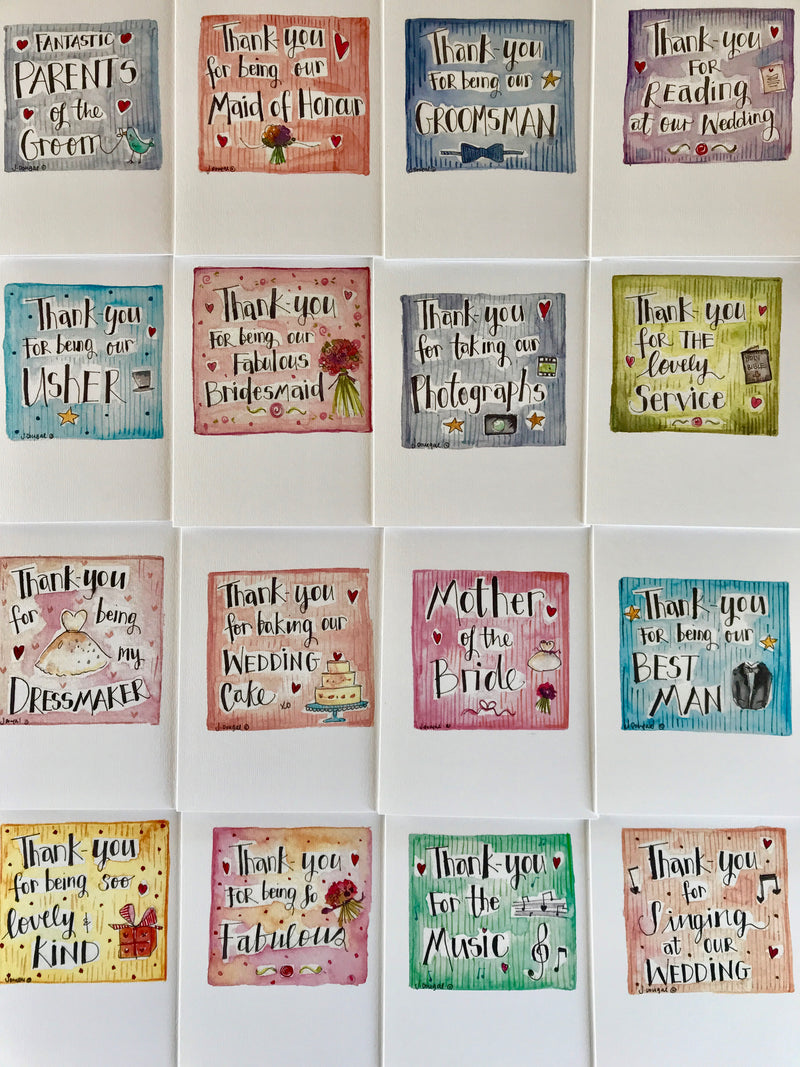 FANTASTIC
PARENTS
of the
Groom
J.Dougal ©
Thank-you
for being our
Maid of Honour
J.Dougal ©
Thank-you
FOR being our
GROOMSMAN
J.Dougal ©
Thank-you
FOR
READING
at our Wedding
J.Dougal ©
Thank-you
FOR being our
USHER
J.Dougal ©
Thank-you
FOR being our
FABULOUS
BRIDESMAID
Thank-you
for taking our
Photographs
J.Dougal ©
Thank-you
for THE
lovely
SERVICE
HOLY
BIBLE
J.Dougal ©
Thank-you
for being
my
DRESSMAKER
J.Dougal ©
Thank-you
for baking our
WEDDING
Cake
xo
J.Dougal ©
Mother
of the
Bride
J.Dougal ©
Thank-you
FOR being our
BEST
MAN
J.Dougal ©
Thank-you
for being soo
lovely &
KIND
J.Dougal ©
Thank you
FOR being So
Fabulous
J.Dougal ©
Thank-you
FOR the
Music
J.Dougal ©
Thank-you
for
Singing
at OUR
WEDDING
J.Dougal ©